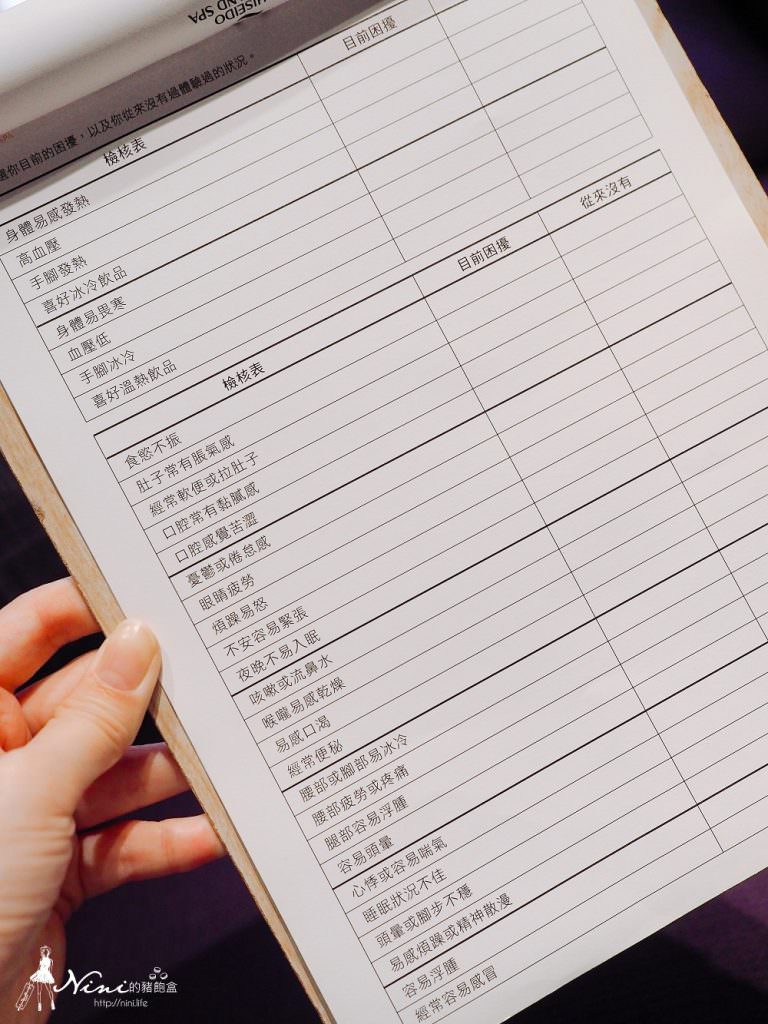 SHISEIDO
AND SPA
你目前的困擾，以及你從來沒有過體驗過的狀況。
檢核表 目前困擾
身體易感發熱
高血壓
手腳發熱
喜好冰冷飲品
身體易畏寒
血壓低
手腳冰冷
喜好溫熱飲品
檢核表 目前困擾 從來沒有
食慾不振
肚子常有脹氣感
經常軟便或拉肚子
口腔常有黏膩感
口腔感覺苦澀
憂鬱或倦怠感
眼睛疲勞
煩躁易怒
不安容易緊張
夜晚不易入眠
咳嗽或流鼻水
喉嚨易感乾燥
易感口渴
經常便秘
腰部或腳部易冰冷
腰部疲勞或疼痛
腿部容易浮腫
容易頭暈
心悸或容易喘氣
睡眠狀況不佳
頭暈或腳步不穩
易感煩躁或精神散漫
容易浮腫
經常容易感冒
Nini的豬飽盒
http://nini.life